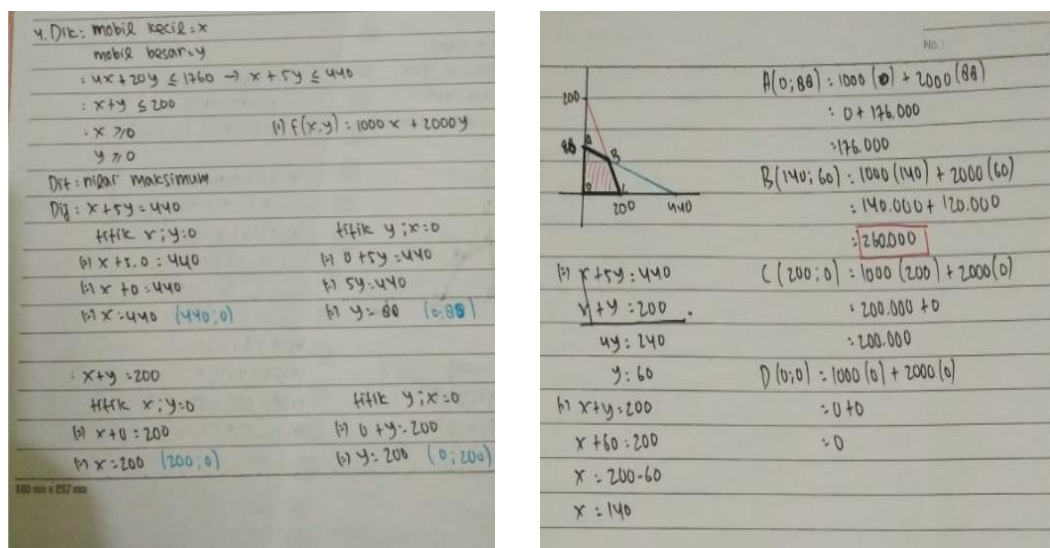 4. Dik: mobil kecil = x
mobil besar = y
: 4x + 20y ≤ 1760 → x + 5y ≤ 440
: x + y ≤ 200
: x ≥ 0 (=) f(x,y) = 1000x + 2000y
y ≥ 0
Dit: nilai maksimum
Dij: x + 5y = 440
titik x ; y = 0 titik y ; x = 0
(=) x + 5.0 = 440 (=) 0 + 5y = 440
(=) x + 0 = 440 (=) 5y = 440
(=) x = 440 (440;0) (=) y = 88 (0;88)
: x + y = 200
titik x ; y = 0 titik y ; x = 0
(=) x + 0 = 200 (=) 0 + y = 200
(=) x = 200 (200;0) (=) y = 200 (0;200)
180 mm x 257 mm
No. :
200
88
A
B
D
200
440
(=) x + 5y = 440
x + y = 200 -
4y = 240
y = 60
(=) x + y = 200
x + 60 = 200
x = 200 - 60
x = 140
A(0;88) = 1000(0) + 2000(88)
= 0 + 176.000
= 176.000
B(140;60) = 1000(140) + 2000(60)
= 140.000 + 120.000
= 260.000
C(200;0) = 1000(200) + 2000(0)
= 200.000 + 0
= 200.000
D(0;0) = 1000(0) + 2000(0)
= 0 + 0
= 0